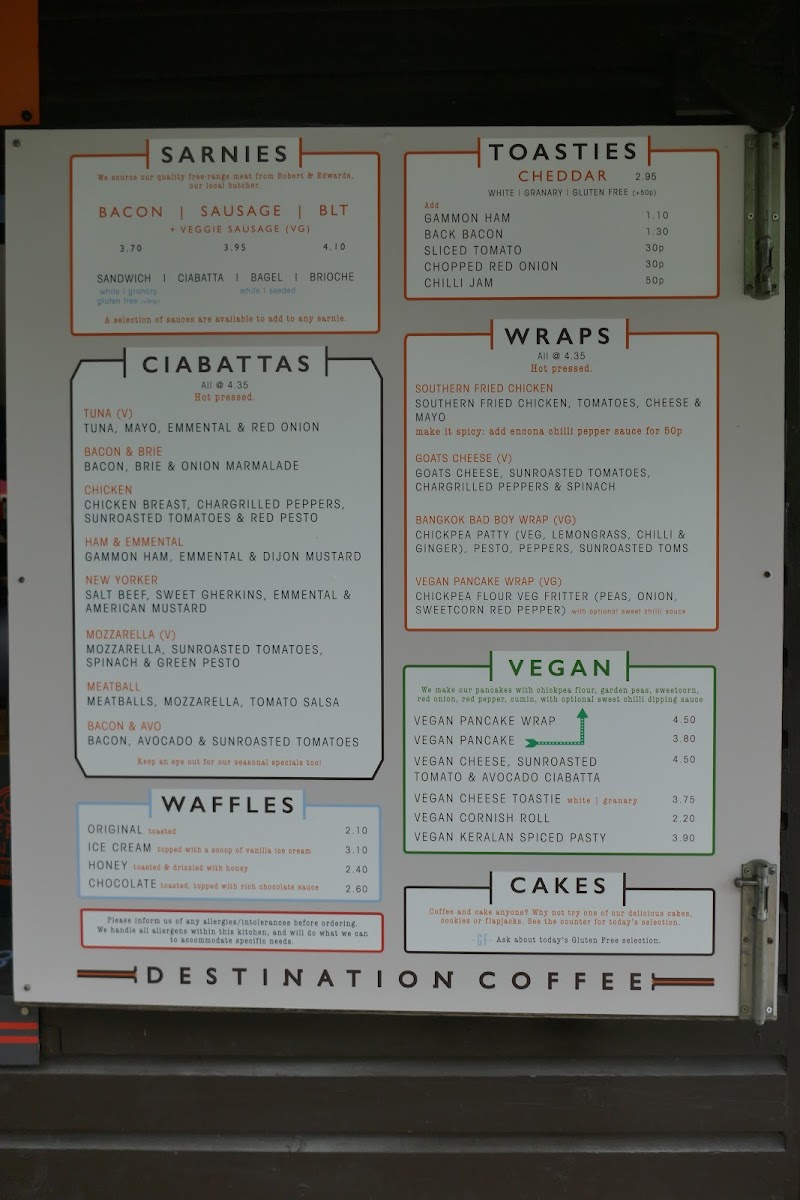 SARNIES
We source our quality free-range meat from Robert & Edwards,
our local butcher.
BACON | SAUSAGE | BLT
+ VEGGIE SAUSAGE (VG)
3.70 3.95 4.10
SANDWICH | CIABATTA | BAGEL | BRIOCHE
white | granary white | seeded
gluten free (+50p)
A selection of sauces are available to add to any sarnie.
CIABATTAS
All @ 4.35
Hot pressed.
TUNA (V)
TUNA, MAYO, EMMENTAL & RED ONION
BACON & BRIE
BACON, BRIE & ONION MARMALADE
CHICKEN
CHICKEN BREAST, CHARGRILLED PEPPERS,
SUNROASTED TOMATOES & RED PESTO
HAM & EMMENTAL
GAMMON HAM, EMMENTAL & DIJON MUSTARD
NEW YORKER
SALT BEEF, SWEET GHERKINS, EMMENTAL &
AMERICAN MUSTARD
MOZZARELLA (V)
MOZZARELLA, SUNROASTED TOMATOES,
SPINACH & GREEN PESTO
MEATBALL
MEATBALLS, MOZZARELLA, TOMATO SALSA
BACON & AVO
BACON, AVOCADO & SUNROASTED TOMATOES
Keep an eye out for our seasonal specials too!
WAFFLES
ORIGINAL toasted 2.10
ICE CREAM topped with a scoop of vanilla ice cream 3.10
HONEY toasted & drizzled with honey 2.40
CHOCOLATE toasted, topped with rich chocolate sauce 2.60
Please inform us of any allergies/intolerances before ordering.
We handle all allergens within this kitchen, and will do what we can
to accommodate specific needs.
TOASTIES
CHEDDAR 2.95
WHITE | GRANARY | GLUTEN FREE (+50p)
Add
GAMMON HAM 1.10
BACK BACON 1.30
SLICED TOMATO 30p
CHOPPED RED ONION 30p
CHILLI JAM 50p
WRAPS
All @ 4.35
Hot pressed.
SOUTHERN FRIED CHICKEN
SOUTHERN FRIED CHICKEN, TOMATOES, CHEESE &
MAYO
make it spicy: add encona chilli pepper sauce for 50p
GOATS CHEESE (V)
GOATS CHEESE, SUNROASTED TOMATOES,
CHARGRILLED PEPPERS & SPINACH
BANGKOK BAD BOY WRAP (VG)
CHICKPEA PATTY (VEG, LEMONGRASS, CHILLI &
GINGER), PESTO, PEPPERS, SUNROASTED TOMS
VEGAN PANCAKE WRAP (VG)
CHICKPEA FLOUR VEG FRITTER (PEAS, ONION,
SWEETCORN RED PEPPER) with optional sweet chilli sauce
VEGAN
We make our pancakes with chickpea flour, garden peas, sweetcorn,
red onion, red pepper, cumin, with optional sweet chilli dipping sauce
VEGAN PANCAKE WRAP 4.50
VEGAN PANCAKE 3.80
VEGAN CHEESE, SUNROASTED 4.50
TOMATO & AVOCADO CIABATTA
VEGAN CHEESE TOASTIE white | granary 3.75
VEGAN CORNISH ROLL 2.20
VEGAN KERALAN SPICED PASTY 3.90
CAKES
Coffee and cake anyone? Why not try one of our delicious cakes,
cookies or flapjacks. See the counter for today's selection.
-GF- Ask about today's Gluten Free selection.
DESTINATION COFFEE